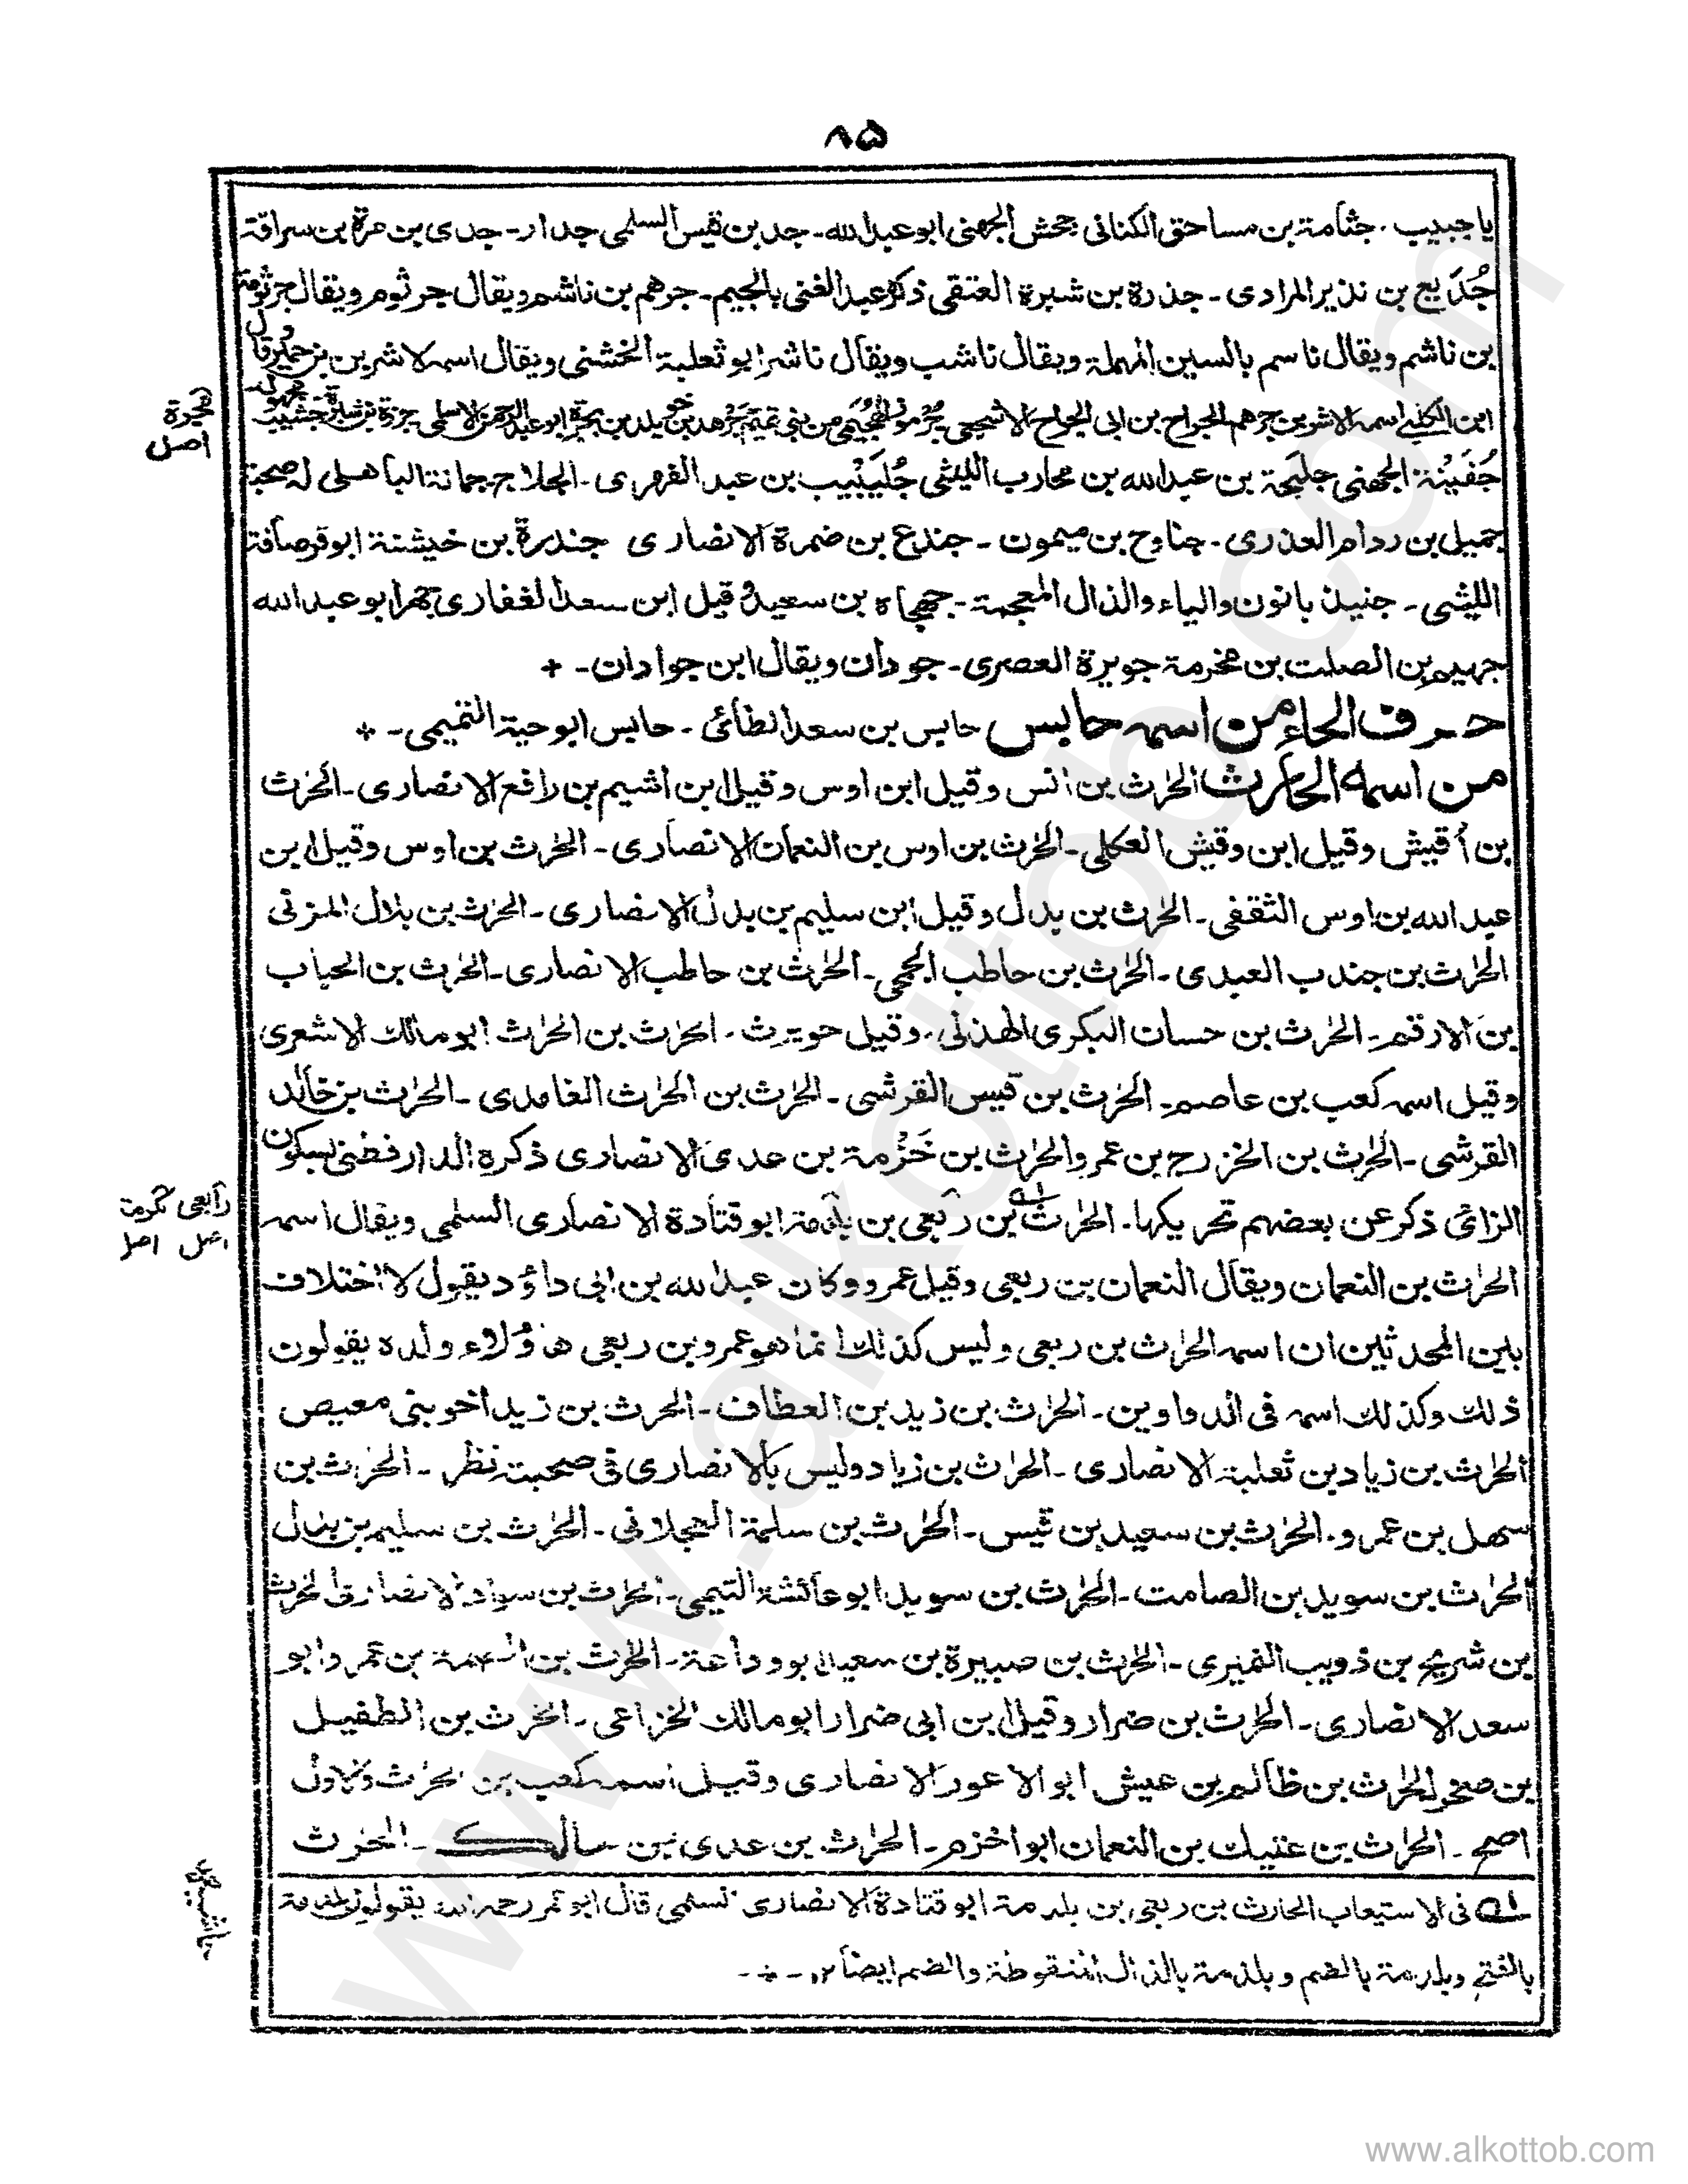 ٨٥
يا جبيب . جثامة بن مساحق الكنانى جحش الجهنى ابو عبد الله - جد بن قيس السلمى جدار - جدى بن مرة بن سراقة
جُدَيع بن نذير المرادى - جذرة بن شبرة العتقى ذكره عبد الغنى بالجيم - جرهم بن ناشم ويقال جرثوم ويقال جرثومة
بن ناشم ويقال ناسم بالسين المهملة ويقال ناشب ويقال ناشر ابو ثعلبة الخشنى ويقال اسمه لاشر بن
ابن الكلبى اسمه الاشر بن جرهم الجراح بن ابى الجراح الاشجعى جُرموز الهُجَيمى من بنى تميم جَرهد بن خويلد بن بجرة ابو عبد الرحمن الاسلمى
هجرة
اصل
جُفَيْنة الجهنى جليحة بن عبد الله بن محارب الليثى جُلَيْبيب بن عبد الفهرى - الجلاج - جمانة الباهلى له صحبة
جميل بن ردام العذرى - جناوح بن ميمون - جندع بن ضمرة الانصارى جندرة بن خيشنة ابو قرصافة
الليثى - جنيذ بانون والياء والذال المعجمة - جهجاه بن سعيد وقيل ابن سعد الغفارى جهر ابو عبد الله
جهيم بن الصلت بن مخرمة جويرة العصرى - جودان ويقال ابن جوادان - +
حرف الحاء من اسمه حابس حابس بن سعد الطائى - حابس ابو حية التميمى - +
من اسمه الحارث الحرث بن انس وقيل ابن اوس وقيل ابن اشيم بن رافع الانصارى - الحرث
بن أقيش وقيل ابن وقيش العكلى - الحرث بن اوس بن النعمان الانصارى - الحرث بن اوس وقيل ابن
عبد الله بن اوس الثقفى - الحرث بن بدل وقيل ابن سليم بن بدل الانصارى - الحرث بن بلال المزنى
الحرث بن جندب العبدى - الحرث بن حاطب الجمحى - الحرث بن حاطب الانصارى - الحرث بن الحباب
بن الارقم - الحرث بن حسان البكرى الهذلى . وقيل حويرث . الحرث بن الحرث ابو مالك الاشعرى
وقيل اسمه كعب بن عاصم - الحرث بن قيس القرشى - الحرث بن الحرث الغامدى - الحرث بن خالد
القرشى - الحرث بن الخزرج بن عمرو الحرث بن خَزْمة بن عدى الانصارى ذكره الدارقطنى بسكون
الزائ ذكر عن بعضهم تحريكها . الحرث بن ربعى بن بلدمة ابو قتادة الانصارى السلمى ويقال اسمه
اصل اصل
الحرث بن النعمان ويقال النعمان بن ربعى وقيل عمرو وكان عبد الله بن ابى داؤد يقول لا اختلاف
بين المحدثين ان اسمه الحرث بن ربعى وليس كذلك انما هو عمرو بن ربعى هؤلاء ولده يقولون
ذلك وكذلك اسمه فى الدواوين - الحرث بن زيد بن العطاف - الحرث بن زيد اخو بنى معيص
الحرث بن زياد بن ثعلبة الانصارى - الحرث بن زياد وليس بالانصارى فى صحبته نظر - الحرث بن
سهل بن عمرو . الحرث بن سعيد بن قيس - الحرث بن سلمة العجلانى - الحرث بن سليم بن بدل
الحرث بن سويد بن الصامت - الحرث بن سويد ابو عائشة التيمى - الحرث بن سواد الانصارى الحرث
بن شريح بن ذويب النميرى - الحرث بن صبيرة بن سعيد ابو وداعة - الحرث بن الصمة بن عمرو ابو
سعد الانصارى - الحرث بن ضرار وقيل ابن ابى ضرار ابو مالك الخزاعى - الحرث بن الطفيل
بن صخر الحرث بن ظالم بن عيش ابو الاعور الانصارى وقيل اسمه كعب بن الحرث والاول
اصح - الحرث بن عتيك بن النعمان ابو اخزم - الحرث بن عدى بن مالك - الحرث
حاشية
له فى الاستيعاب الحارث بن ربعى بن بلدمة ابو قتادة الانصارى السلمى قال ابو عمر رحمه الله يقولون بلدمة
بالفتح وبلدمة بالضم وبلذمة بالذال المنقوطة والضم ايضا ١٢ - + -
www.alkottob.com
www.alkottob.com